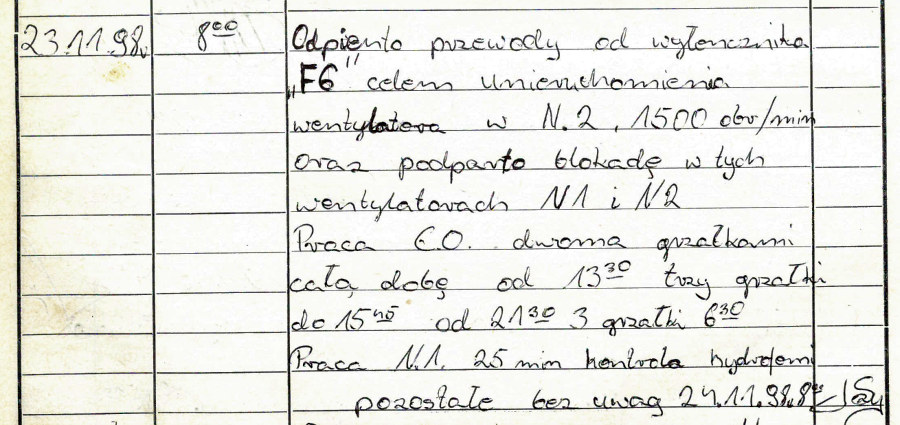 23.11.98. 8⁰⁰ Odpiento przewody od wyłencznika
„F6" celem unieruchomienia
wentylatora w N.2, 1500 obr/min
oraz podparto blokadę w tych
wentylatorach N1 i N2
Praca C.O. dwoma grzałkami
całą dobę od 13³⁰ trzy grzałki
do 15⁴⁵ od 21³⁰ 3 grzałki 6³⁰
Praca N.1. 25 min kontrola
pozostałe bez uwag 24.11.98. 8⁰⁰